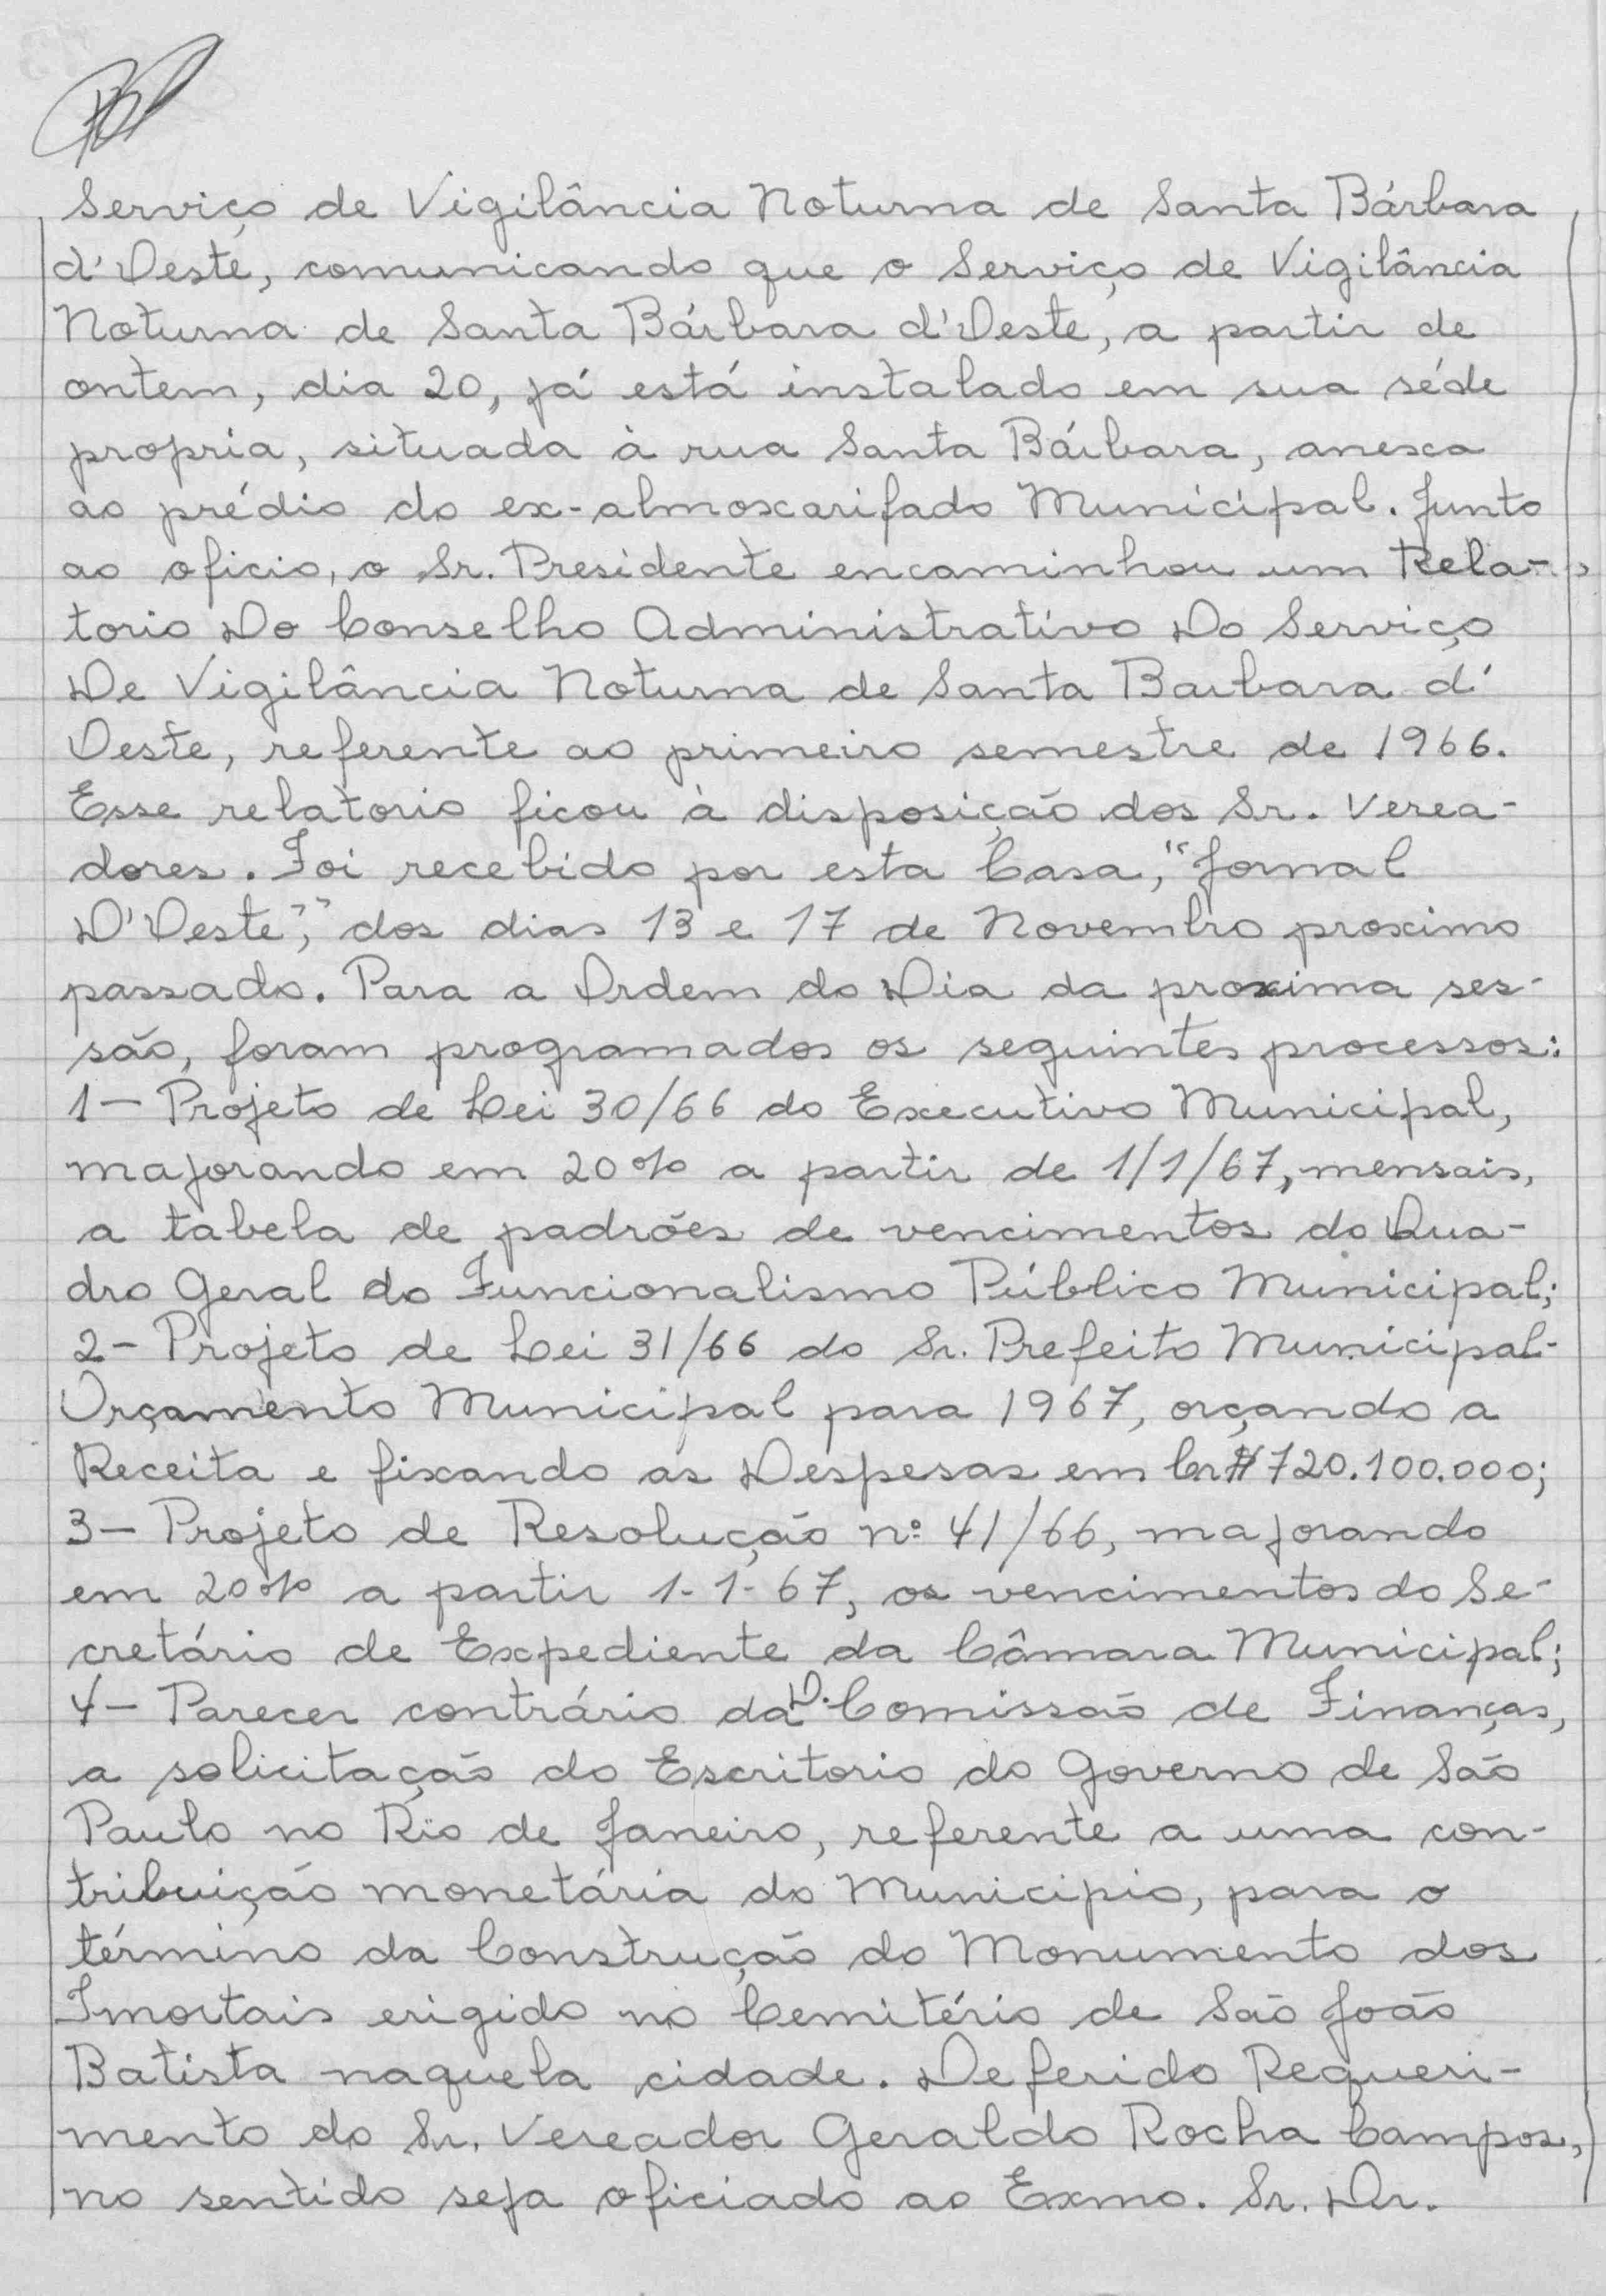 Serviço de Vigilância Noturna de Santa Bárbara
d'Oeste, comunicando que o Serviço de Vigilância
Noturna de Santa Bárbara d'Oeste, a partir de
ontem, dia 20, já está instalado em sua séde
propria, situada à rua Santa Bárbara, anexa
ao prédio do ex-almoxarifado Municipal. Junto
ao oficio, o Sr. Presidente encaminhou um Rela-
torio Do Conselho Administrativo Do Serviço
De Vigilância Noturna de Santa Barbara d'
Oeste, referente ao primeiro semestre de 1966.
Esse relatorio ficou à disposição dos Sr. Verea-
dores. Foi recebido por esta Casa, "Jornal
D'Oeste", dos dias 13 e 17 de Novembro proximo
passado. Para a Ordem do Dia da proxima ses-
são, foram programados os seguintes processos:
1- Projeto de Lei 30/66 do Executivo Municipal,
majorando em 20% a partir de 1/1/67, mensais,
a tabela de padrões de vencimentos do Qua-
dro Geral do Funcionalismo Público Municipal;
2- Projeto de Lei 31/66 do Sr. Prefeito Municipal-
Orçamento Municipal para 1967, orçando a
Receita e fixando as Despesas em Cr$ 720.100.000;
3- Projeto de Resolução nº 41/66, majorando
em 20% a partir 1-1-67, os vencimentos do Se-
cretário de Expediente da Câmara Municipal;
4- Parecer contrário da D. Comissão de Finanças,
a solicitação do Escritorio do Governo de São
Paulo no Rio de Janeiro, referente a uma con-
tribuição monetária do Municipio, para o
término da Construção do Monumento dos
Imortais erigido no Cemitério de São João
Batista naquela cidade. Deferido Requeri-
mento do Sr. Vereador Geraldo Rocha Campos,
no sentido seja oficiado ao Exmo. Sr. Dr.